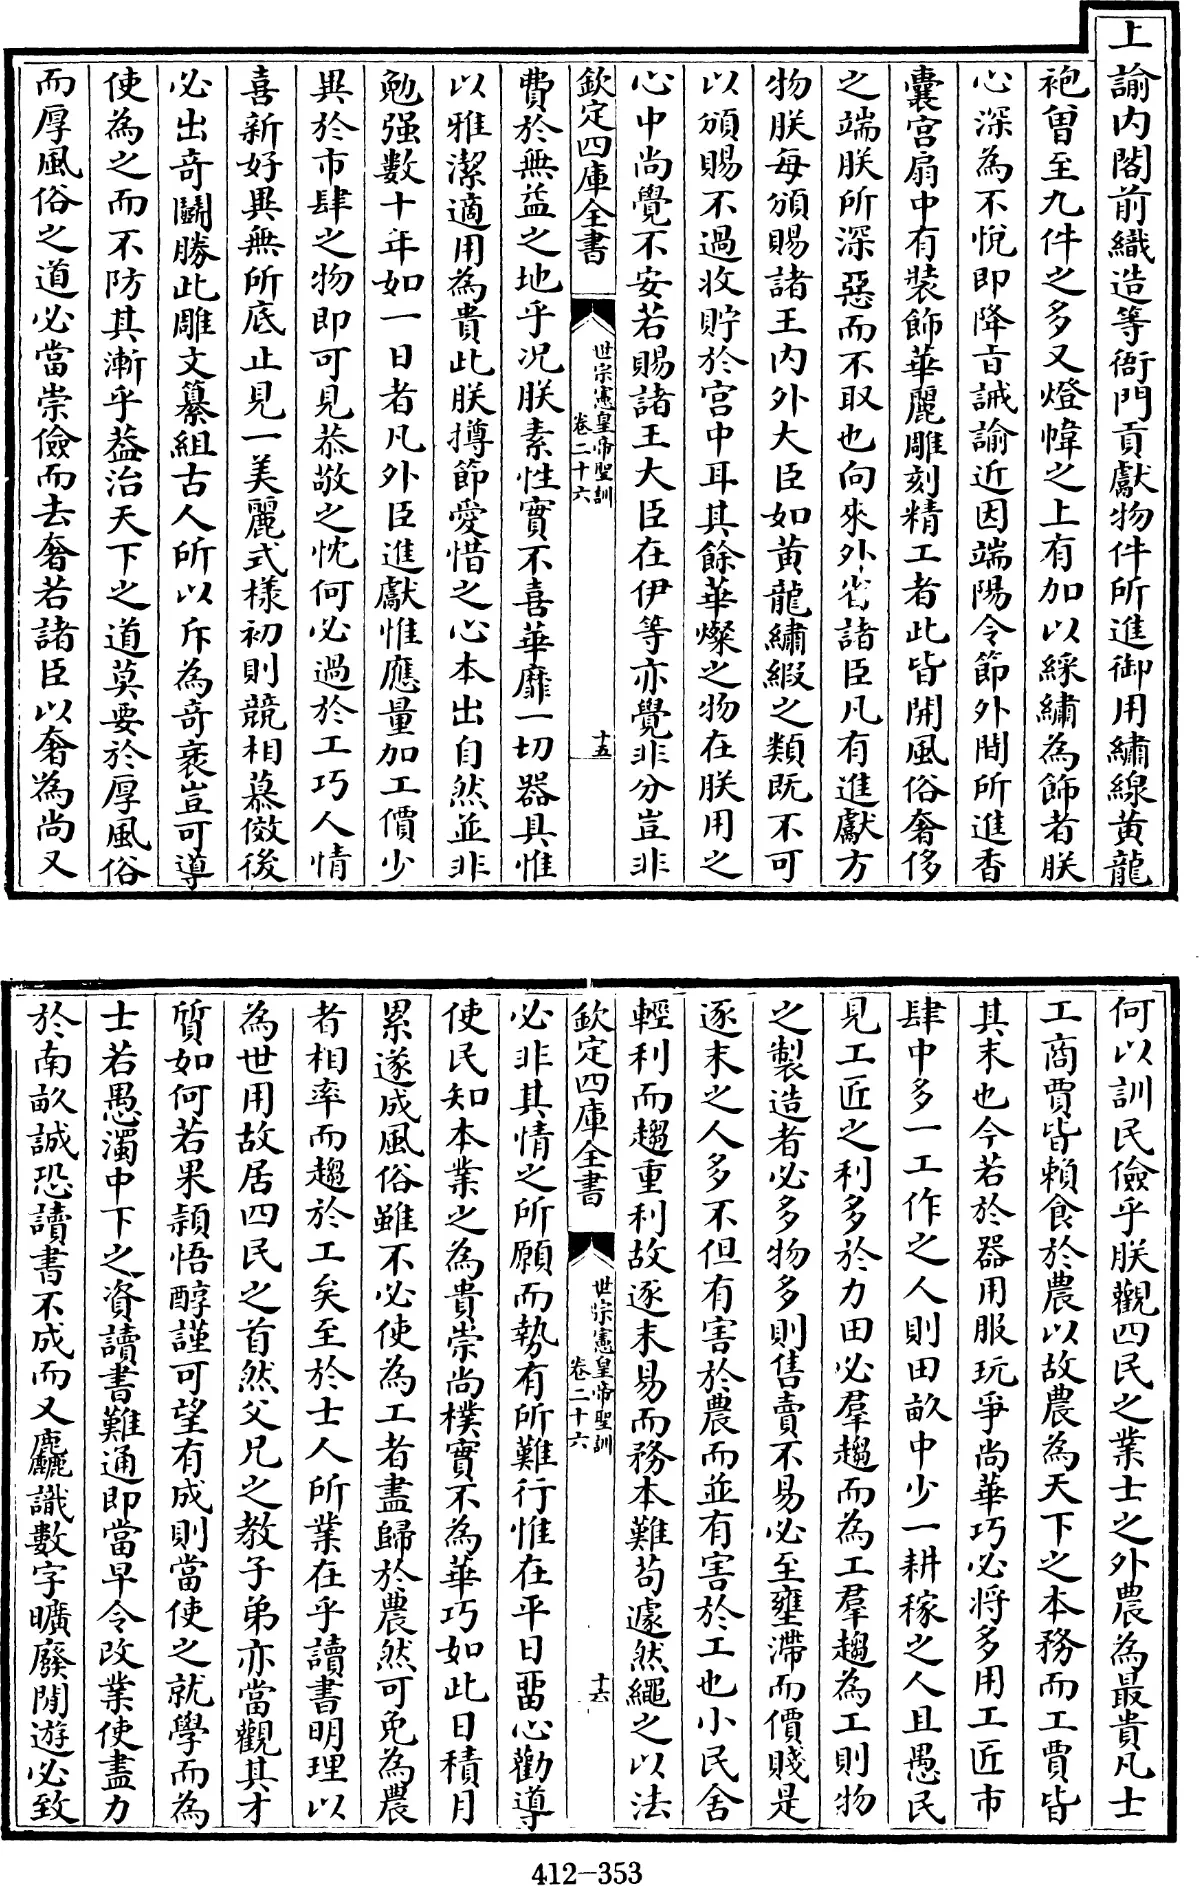 上諭内閣前織造等衙門貢獻物件所進御用繡線黄龍
袍曾至九件之多又燈幃之上有加以綵繡為飾者朕
心深為不悦即降㫖誡諭近因端陽令節外間所進香
囊宫扇中有裝飾華麗雕刻精工者此皆開風俗奢侈
之端朕所深惡而不取也向來外省諸臣凡有進獻方
物朕每頒賜諸王内外大臣如黄龍繡緞之類既不可
以頒賜不過收貯於宫中耳其餘華燦之物在朕用之
心中尚覺不安若賜諸王大臣在伊等亦覺非分豈非
欽定四庫全書
世宗憲皇帝聖訓
卷二十六
十五
費於無益之地乎况朕素性實不喜華靡一切器具惟
以雅潔適用為貴此朕撙節愛惜之心本出自然並非
勉强數十年如一日者凡外臣進獻惟應量加工價少
異於市肆之物即可見恭敬之忱何必過於工巧人情
喜新好異無所底止見一美麗式樣初則競相慕傚後
必出奇鬬勝此雕文纂組古人所以斥為奇衺豈可導
使為之而不防其漸乎葢治天下之道莫要於厚風俗
而厚風俗之道必當崇儉而去奢若諸臣以奢為尚又
何以訓民儉乎朕觀四民之業士之外農為最貴凡士
工商賈皆賴食於農以故農為天下之本務而工賈皆
其末也今若於器用服玩爭尚華巧必将多用工匠市
肆中多一工作之人則田畝中少一耕稼之人且愚民
見工匠之利多於力田必羣趨而為工羣趨為工則物
之製造者必多物多則售賣不易必至壅滯而價賤是
逐末之人多不但有害於農而並有害於工也小民舍
輕利而趨重利故逐末易而務本難苟遽然繩之以法
欽定四庫全書
世宗憲皇帝聖訓
卷二十六
十六
必非其情之所願而勢有所難行惟在平日畱心勸導
使民知本業之為貴崇尚樸實不為華巧如此日積月
累遂成風俗雖不必使為工者盡歸於農然可免為農
者相率而趨於工矣至於士人所業在乎讀書明理以
為世用故居四民之首然父兄之教子弟亦當觀其才
質如何若果頴悟醇謹可望有成則當使之就學而為
士若愚濁中下之資讀書難通即當早令改業使盡力
於南畝誠恐讀書不成而又麤識數字曠廢閒遊必致
412-353